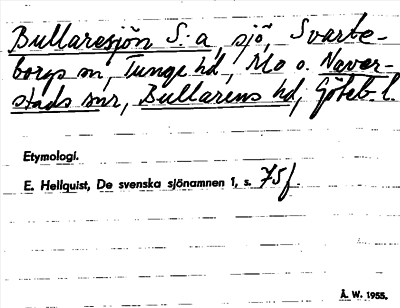 Bullaresjön S:a, sjö, Svarte-
borgs sn, Tunge hd, Mo o. Naver-
stads snr, Bullarens hd, Göteb. l.
Etymologi.
E. Hellquist, De svenska sjönamnen 1, s. 75f.
Å. W. 1955.